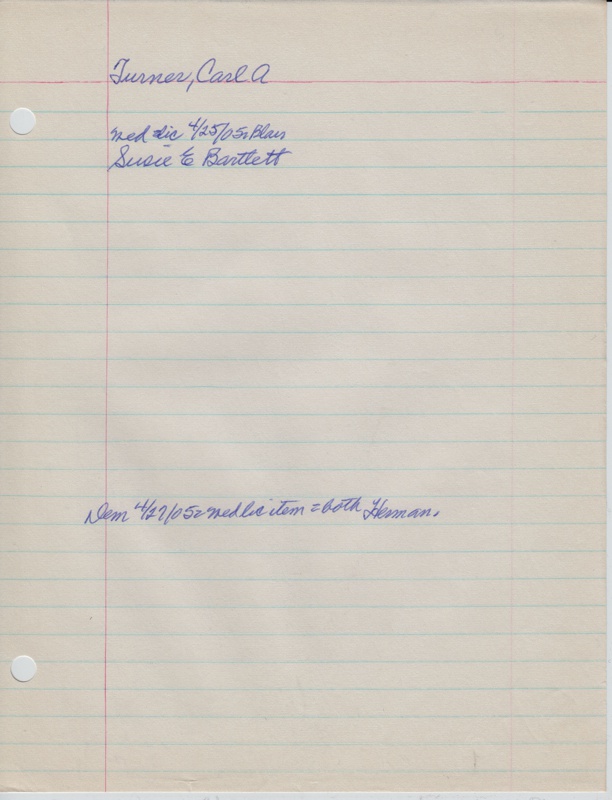 Turner, Carl A
wed lic 4/25/05 = Blair
Susie E Bartlett
Dem 4/27/05 = wed lic item = both Herman.